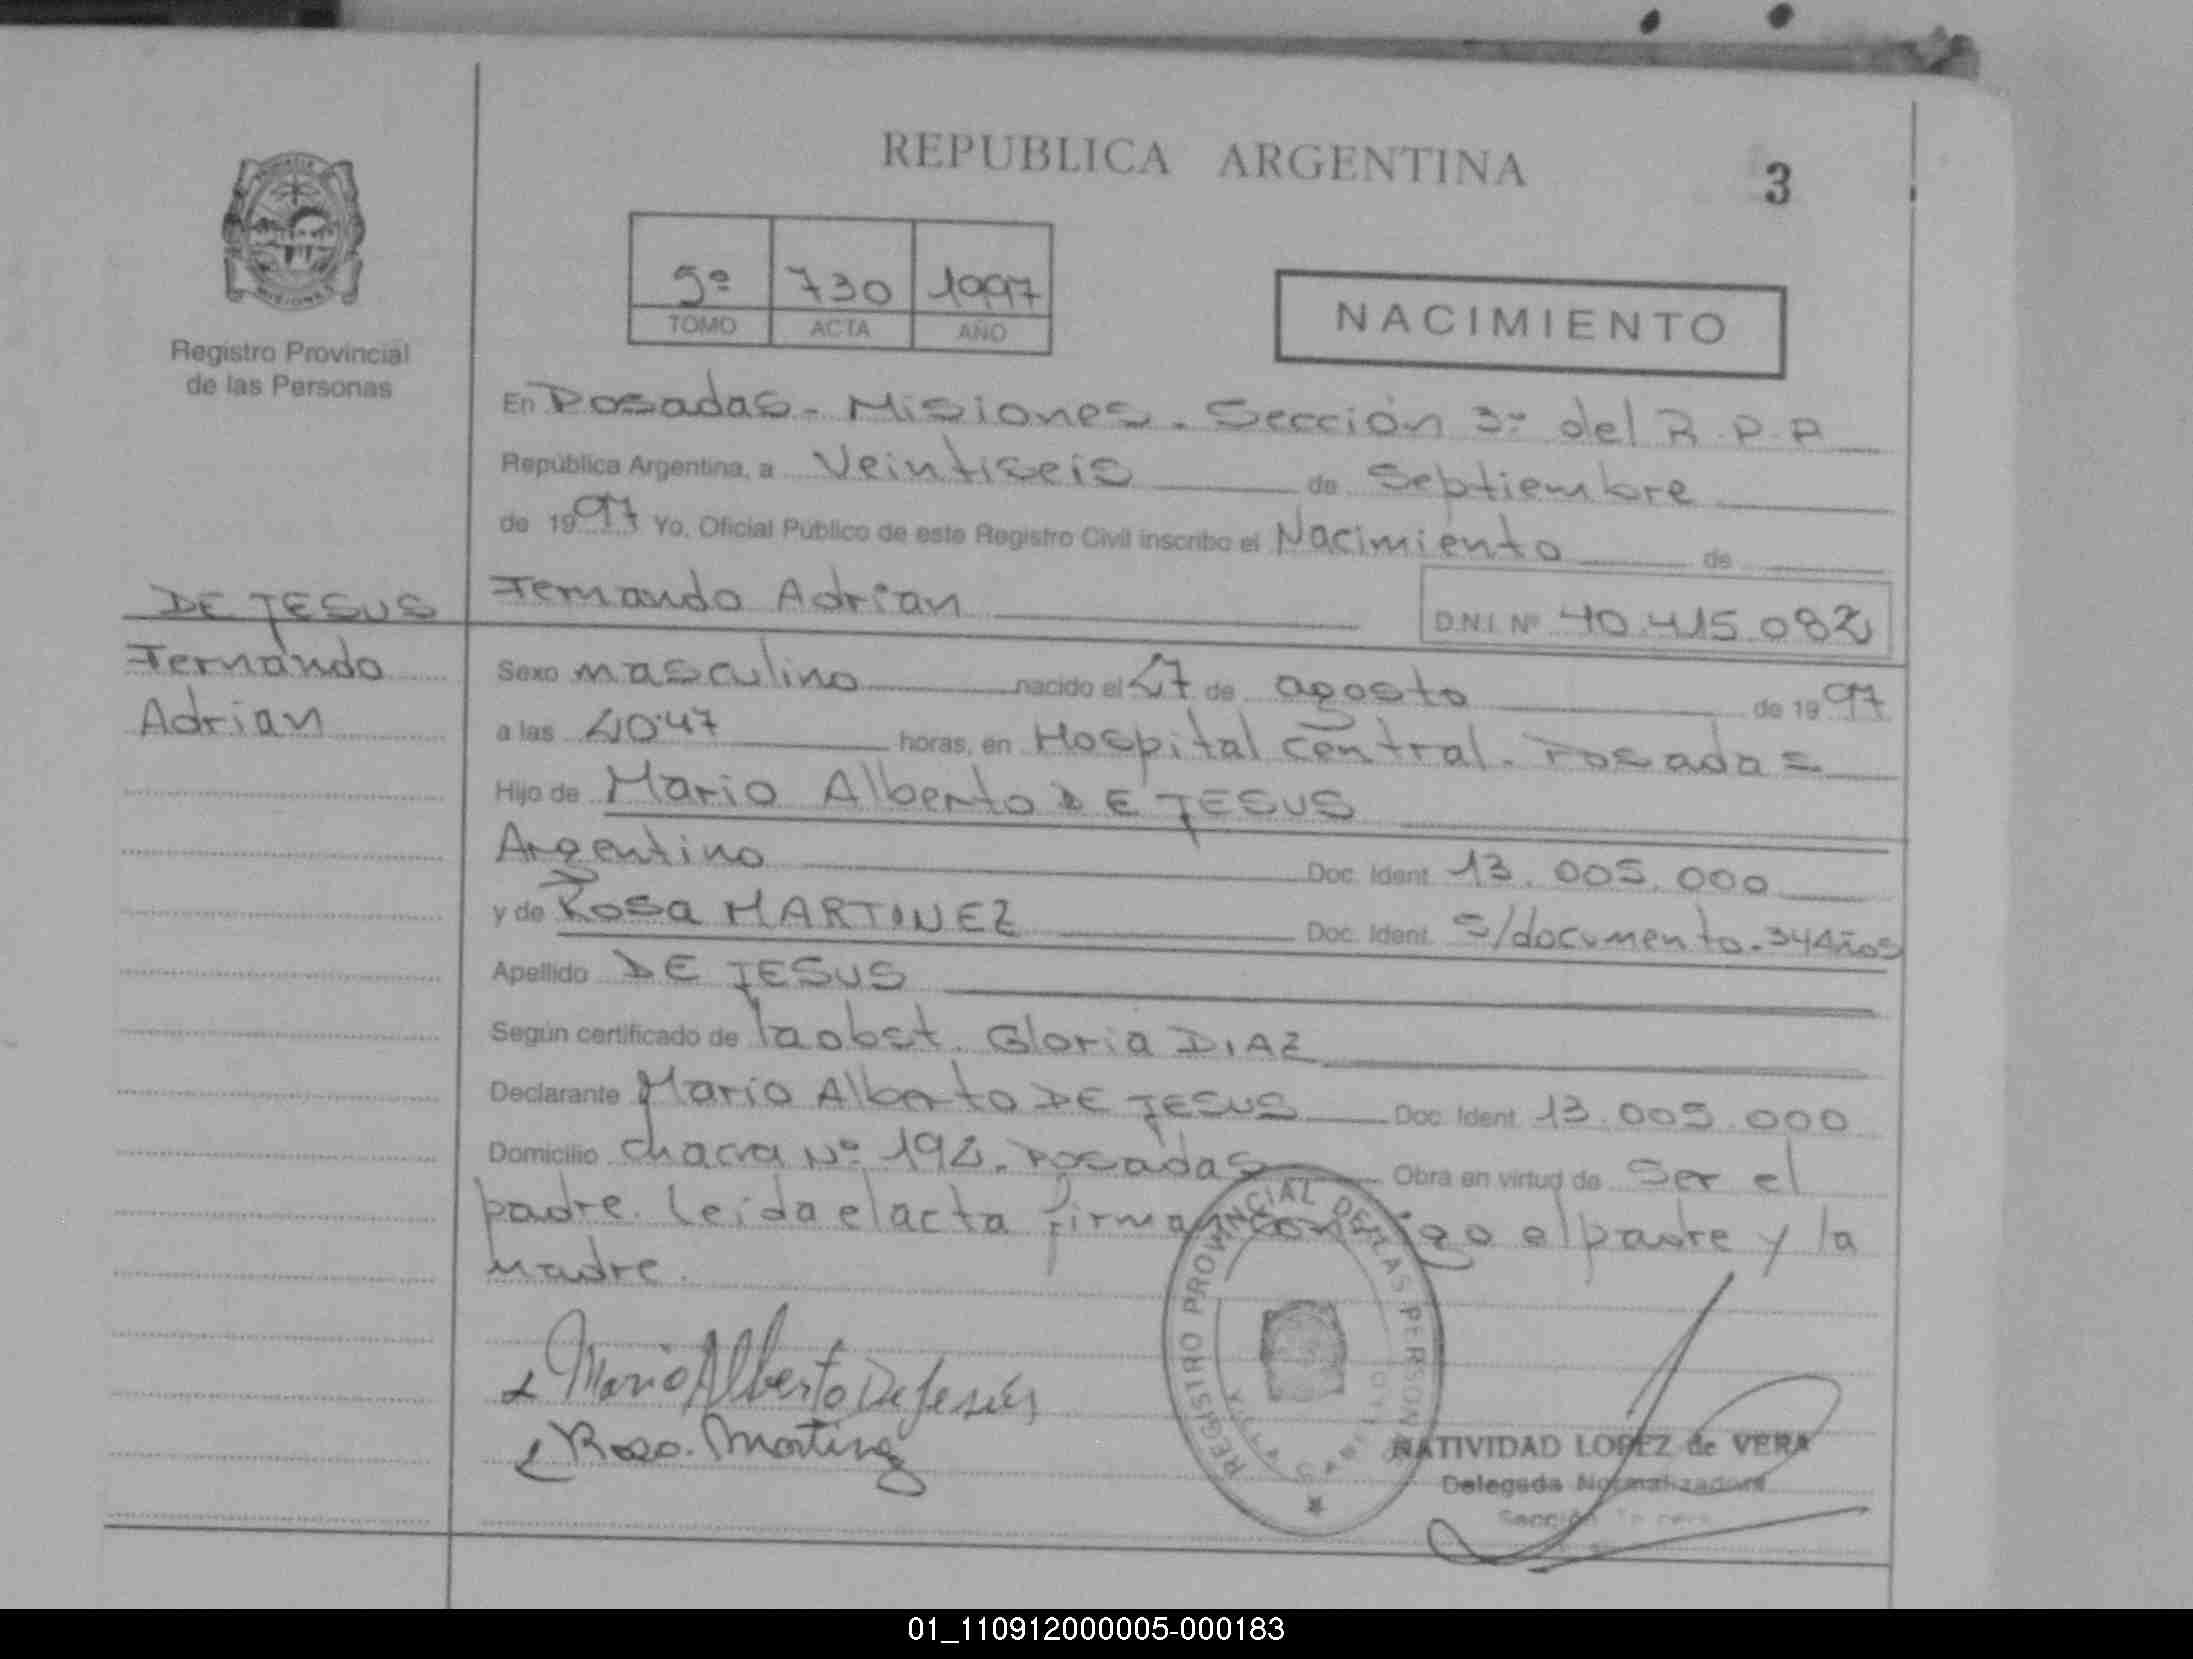 REPUBLICA ARGENTINA
3
5º 730 1997
TOMO ACTA AÑO
NACIMIENTO
Registro Provincial
de las Personas
En Posadas - Misiones. Sección 3º del R.P.P
República Argentina, a Veintiseis de Septiembre
de 1997 Yo, Oficial Público de este Registro Civil inscribo el Nacimiento de
Fernando Adrian D.N.I. Nº 40.415.082
DE JESUS
Fernando
Adrian
Sexo masculino nacido el 27 de agosto de 1997
a las 20:47 horas, en Hospital Central. Posadas
Hijo de Mario Alberto DE JESUS
Argentino Doc. Ident. 13.005.000
y de Rosa MARTINEZ Doc. Ident. s/documento. 34 Años
Apellido DE JESUS
Según certificado de la obst. Gloria DIAZ
Declarante Mario Alberto DE JESUS Doc. Ident. 13.005.000
Domicilio chacra Nº 192. Posadas Obra en virtud de ser el
padre. Leida el acta firman conmigo el padre y la
madre.
Mario Alberto De Jesús
Rosa Martinez
REGISTRO PROVINCIAL DE LAS PERSONAS
NATIVIDAD LOPEZ de VERA
Delegada Normalizadora
Sección
01_110912000005-000183